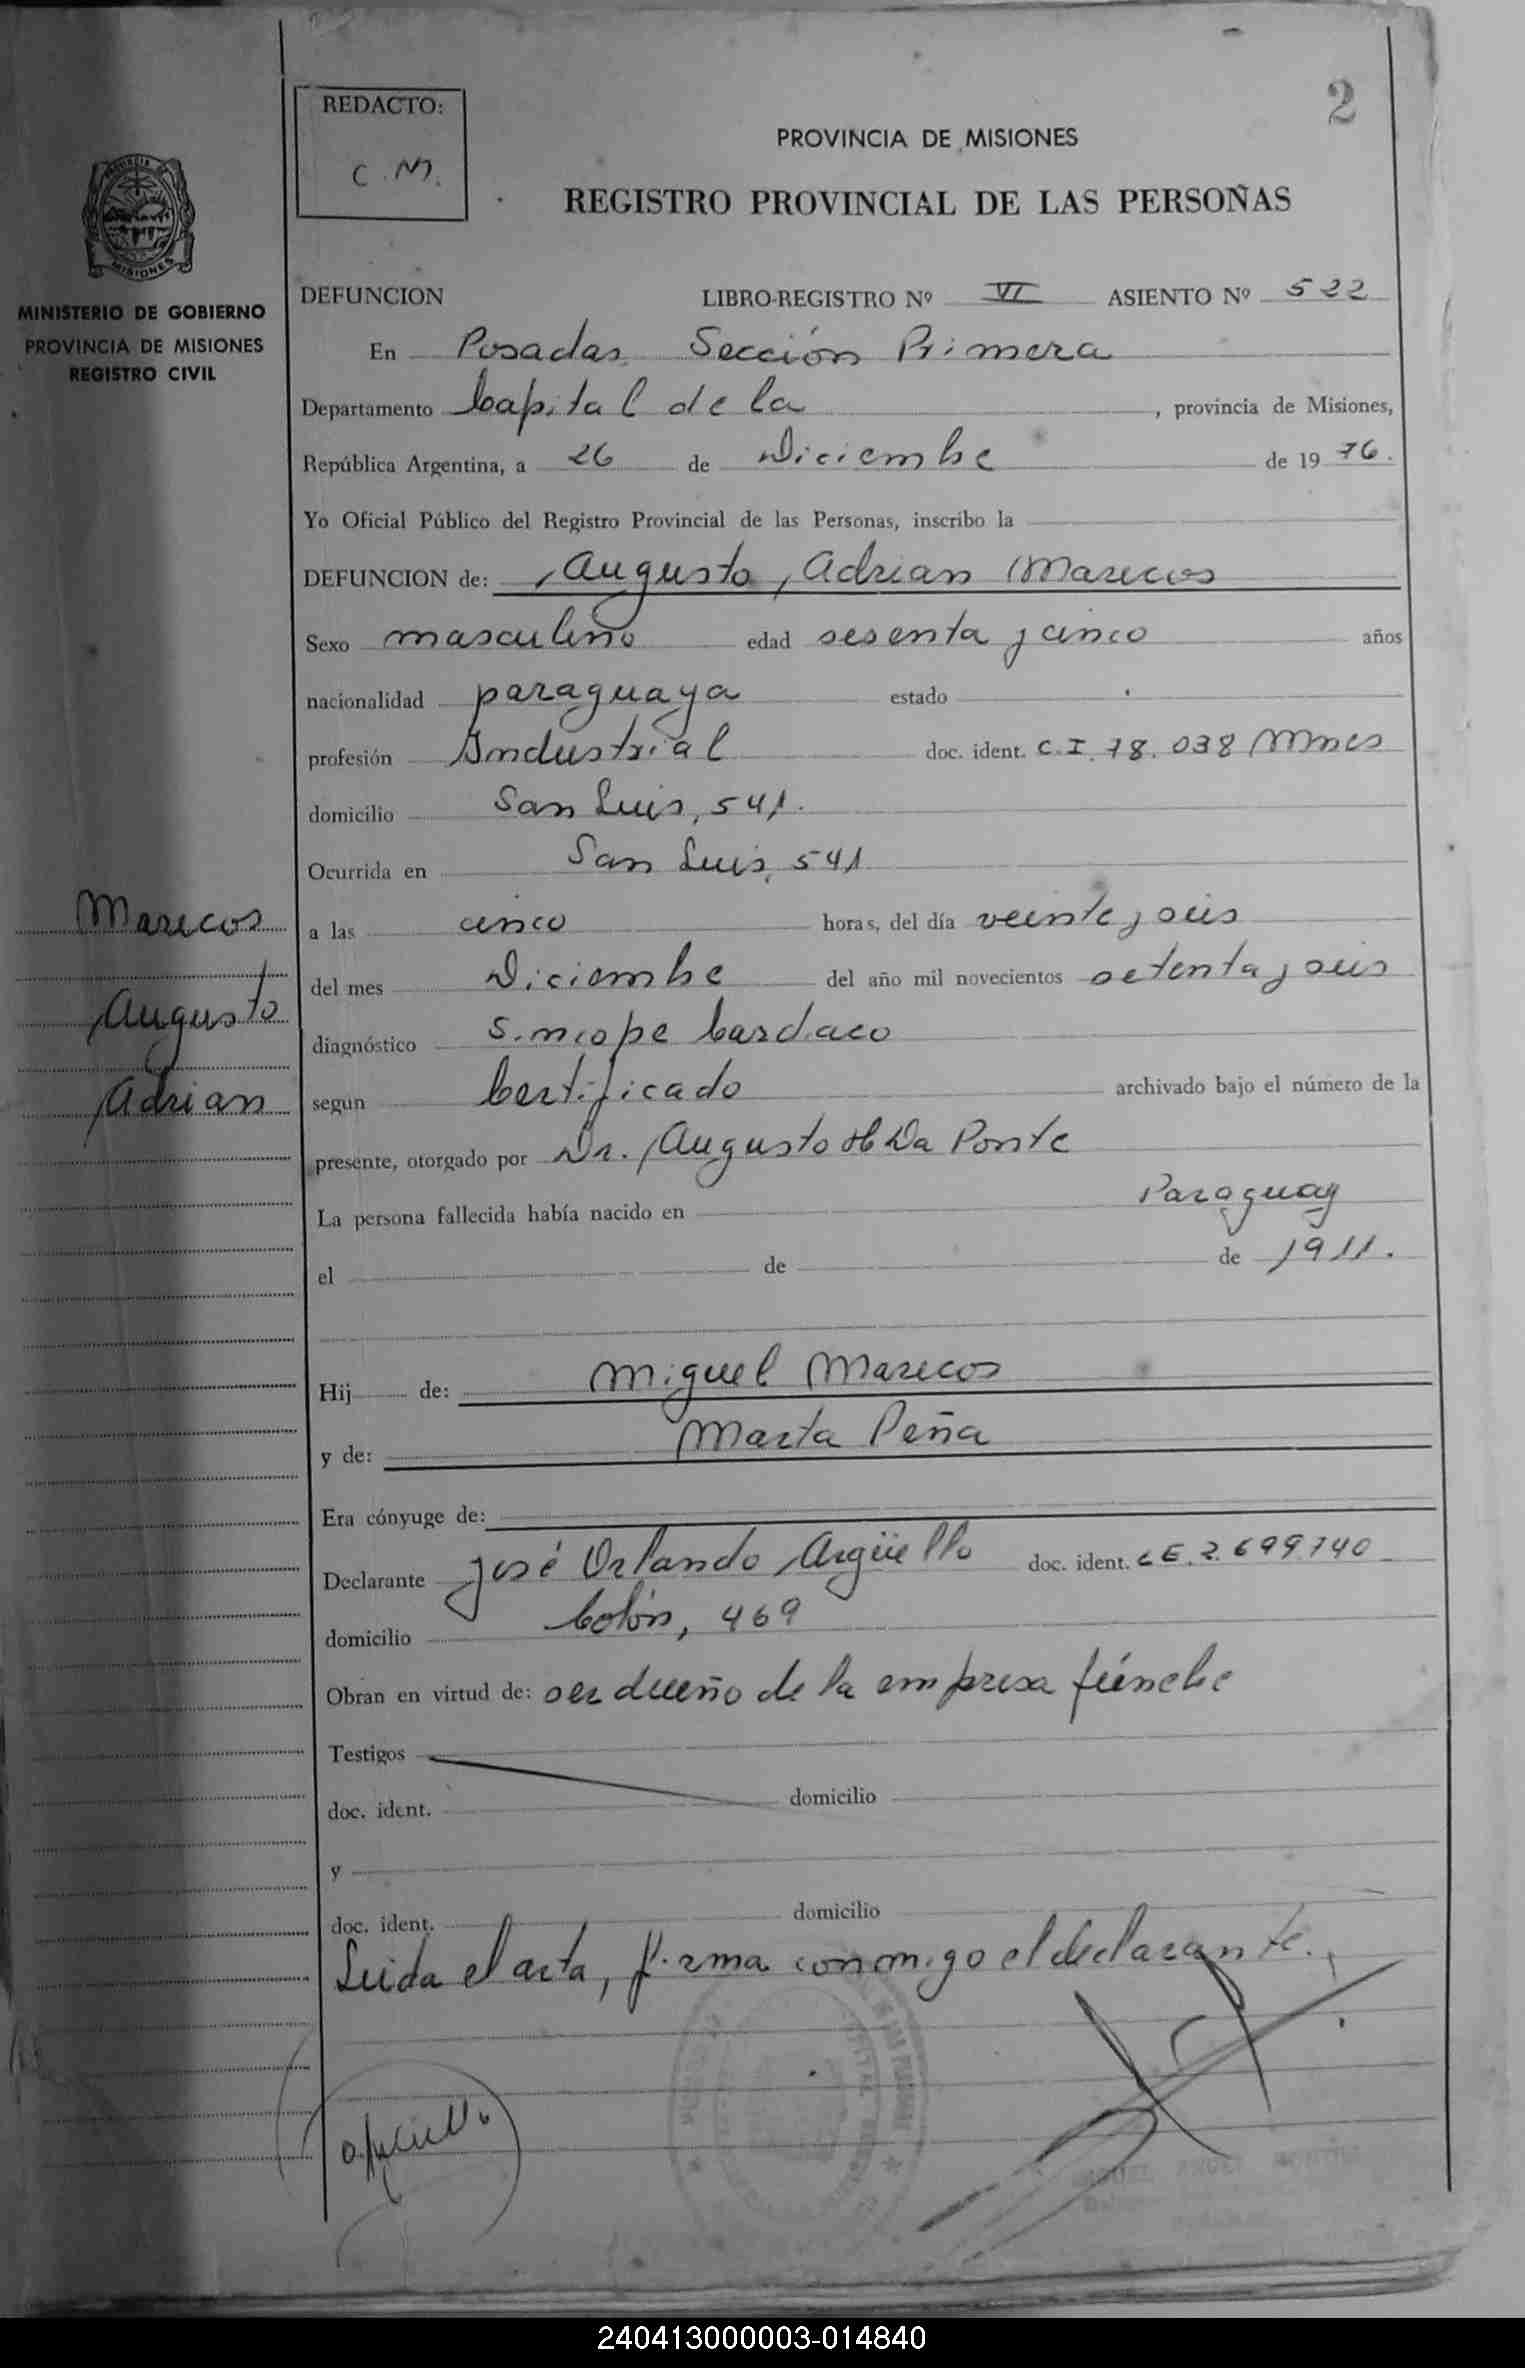 2
REDACTO:
C.M.
PROVINCIA DE MISIONES
REGISTRO PROVINCIAL DE LAS PERSONAS
MINISTERIO DE GOBIERNO
PROVINCIA DE MISIONES
REGISTRO CIVIL
DEFUNCION LIBRO-REGISTRO Nº VI ASIENTO Nº 522
En Posadas Sección Primera
Departamento Capital de la, provincia de Misiones,
República Argentina, a 26 de Diciembre de 1976.
Yo Oficial Público del Registro Provincial de las Personas, inscribo la
DEFUNCION de: Augusto, Adrian Marecos
Sexo masculino edad sesenta y cinco años
nacionalidad paraguaya estado
profesión Industrial doc. ident. C.I. 78.038 Mnes
domicilio San Luis, 541.
Ocurrida en San Luis, 541
Marecos
Augusto
Adrian
a las cinco horas, del día veinte y seis
del mes Diciembre del año mil novecientos setenta y seis
diagnóstico Sincope Cardiaco
segun Certificado archivado bajo el número de la
presente, otorgado por Dr. Augusto H Da Ponte
La persona fallecida había nacido en Paraguay
el de de 1911.
Hij de: Miguel Marecos
y de: Marta Peña
Era cónyuge de:
Declarante José Orlando Argüello doc. ident. LE.2.699.740
domicilio Colón, 469
Obran en virtud de: ser dueño de la empresa fúnebre
Testigos
doc. ident. domicilio
y
doc. ident. domicilio
Leida el acta, firma conmigo el declarante.
240413000003-014840